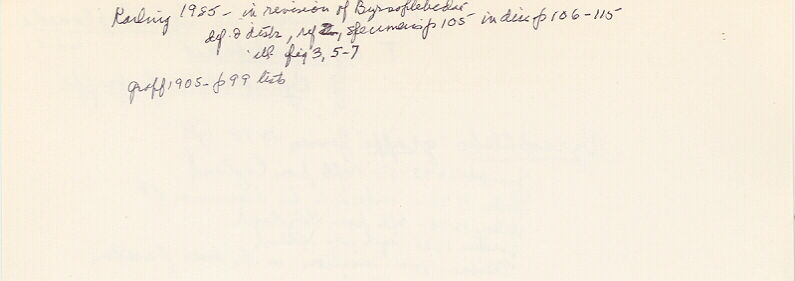 Karling 1985 - in revision of Byrsophlebidae
def. & distr, ref, specimens p 105 in disc p 106-115
ill. fig 3, 5-7
Graff 1905 - p 99 lists